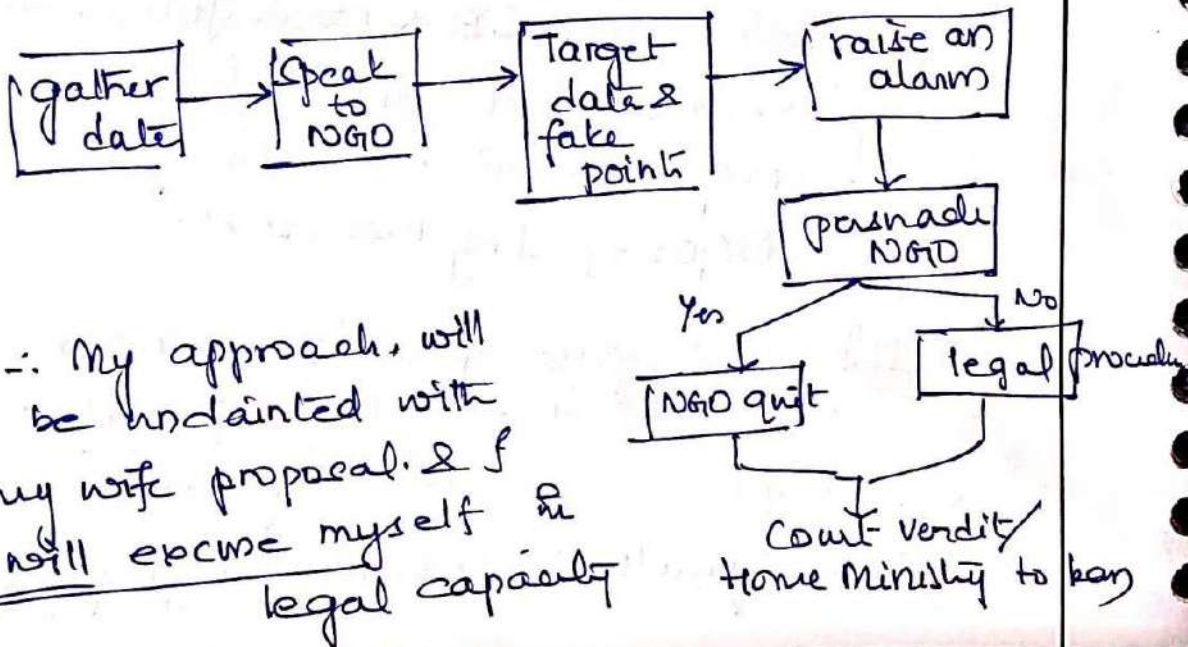 gather
data
Speak
to
NGO
Target
data &
fake
points
raise an
alarm
persuade
NGO
Yes
No
NGO quit
legal procedu
Court verdit/
Home Ministry to ban
∴ My approach, will
be undainted with
my wife proposal. & I
will excuse myself in
legal capacity